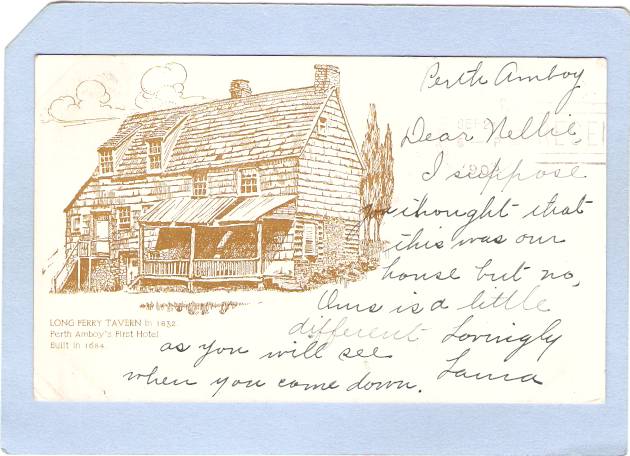 Perth Amboy
Dear Nellie,
I suppose
you thought that
this was our
house but no,
Ours is a little
different Lovingly
as you will see
Laura
when you come down.
LONG FERRY TAVERN in 1832
Perth Amboy's First Hotel
Built in 1684